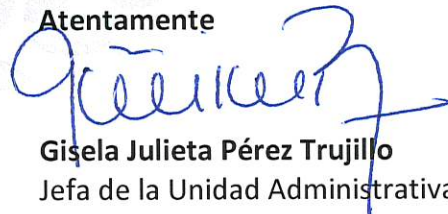 Atentamente
Gisela Julieta Pérez Trujillo
Jefa de la Unidad Administrativa